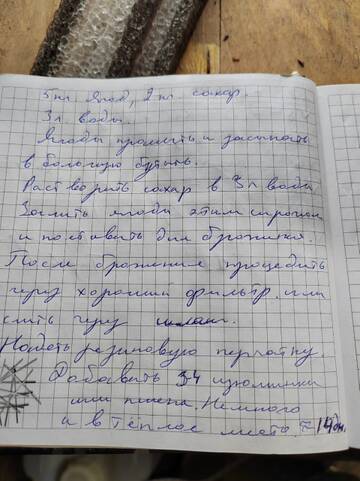 5 кг ягод, 2 кг сахар.
3 л воды.
Ягоды промыть и засыпать
в большую бутыль.
Растворить сахар в 3 л воды
Залить ягоды этим сиропом
и поставить для брожения.
После брожения процедить
через хороший фильтр или
слить через шланг.
Надеть резиновую перчатку.
Добавить 3-4 изюминки
или пшена. Немного
и в тёплое место. ≈ 14 дн.